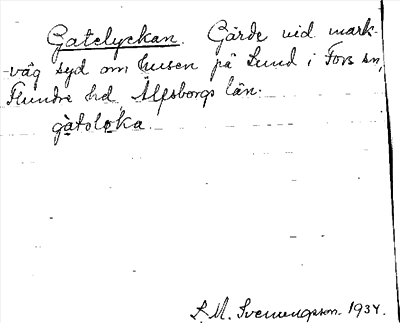 Gatelyckan. Gärde vid mark-
väg syd om husen på Lund i Fors sn,
Flundre hd Älfsborgs län.
gàtolǫka.
S. M. Svenungsson. 1934.